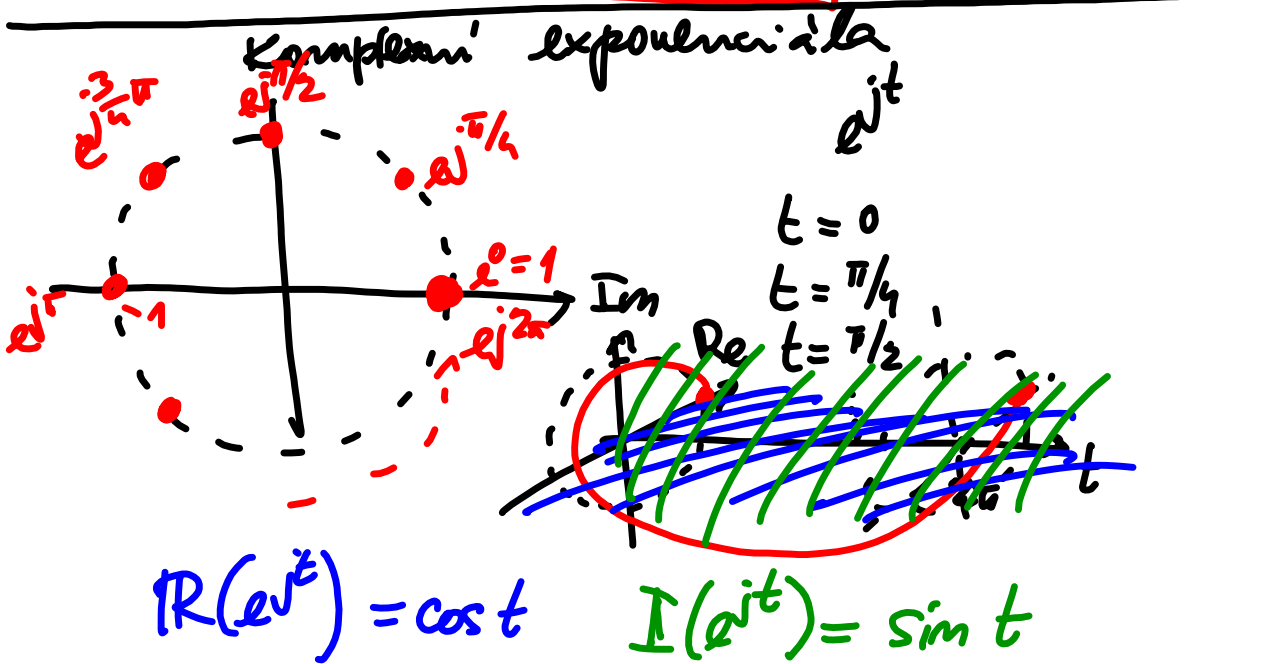 Komplexní exponenciála
e^{jt}
e^{j3/4π}
e^{jπ/2}
e^{jπ/4}
e^0 = 1
e^{jπ}
-1
e^{j2π}
t = 0
t = π/4
t = π/2
Im
Re
t
R(e^{jt}) = cos t
I(e^{jt}) = sin t